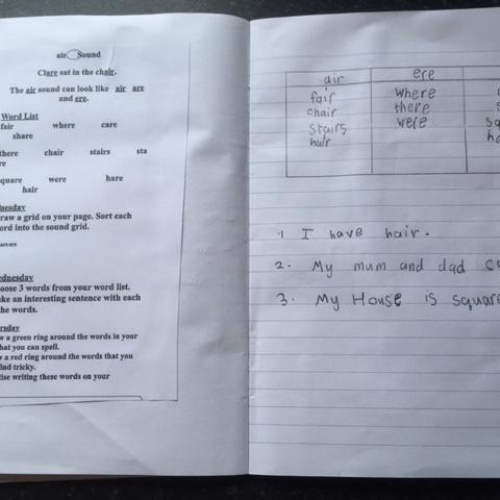 air Sound
Clare sat in the chair.
The air sound can look like air are
and ere.
Word List
fair where care
share
there chair stairs sta
re
quare were hare
hair
uesday
raw a grid on your page. Sort each
ord into the sound grid.
ednesday
oose 3 words from your word list.
ke an interesting sentence with each
the words.
rsday
w a green ring around the words in your
hat you can spell.
w a red ring around the words that you
ind tricky.
tise writing these words on your
air ere
fair where
chair there
stairs were sq
hair ha
1 I have hair.
2. My mum and dad
3. My House is square